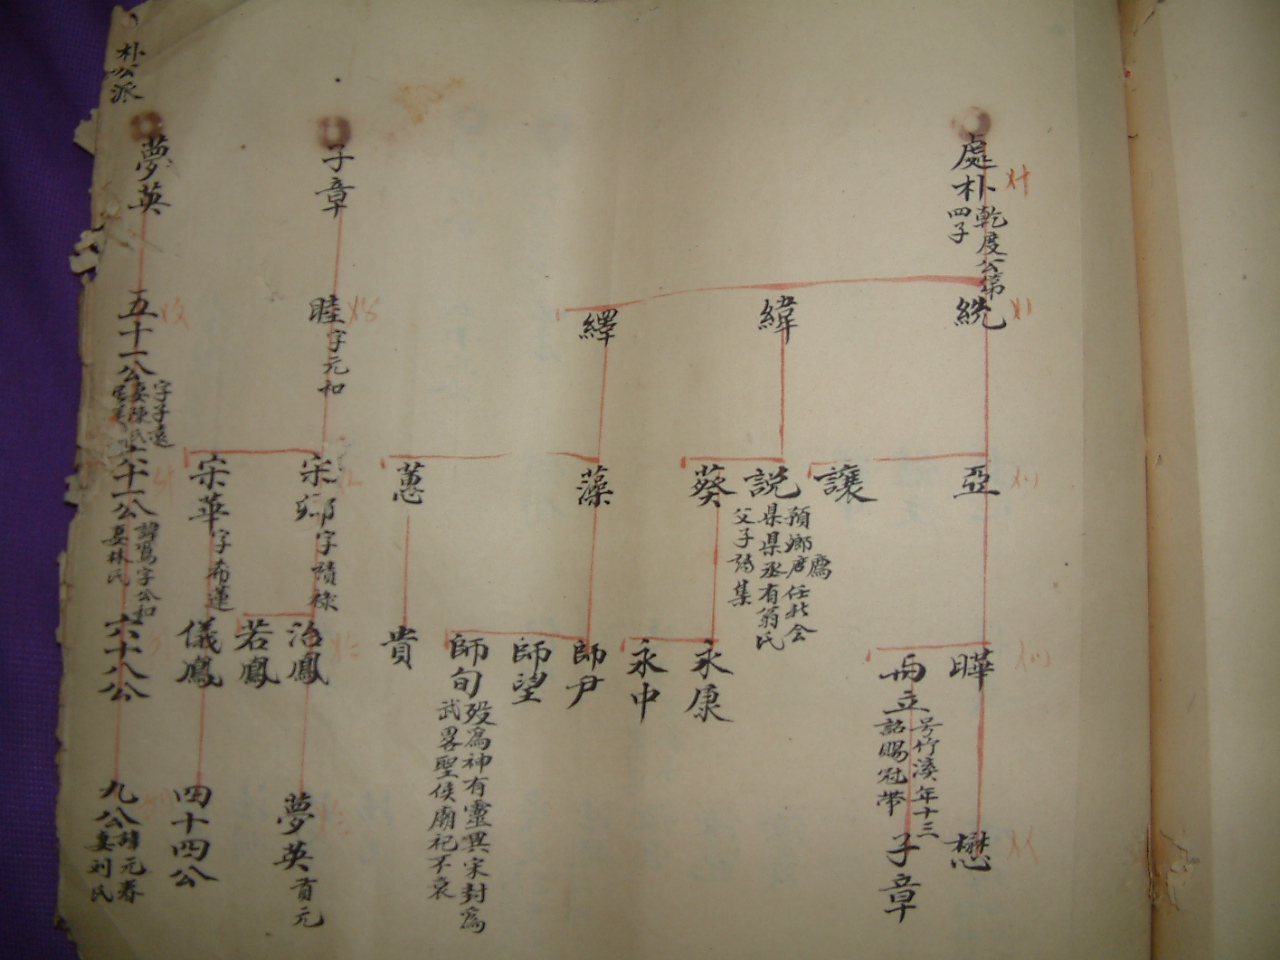 處朴
乾度公第
四子
統
緯
繹
亞
讓
説
預鄉
父子
葵
藻
蕙
曄
雨立
号竹溪年十三
詔賜冠帶
永康
永中
師尹
師望
師旬
殁為神有靈異宋封為
武畧聖侯廟祀不衰
貴
懋
子章
子章
睦
字元和
宋鄉
字積祿
宋華
字希蓮
治鳳
若鳳
儀鳳
夢英
貢元
四十四公
夢英
五十一公
字子遠
娶陳氏
六十一公
字公和
娶林氏
六十八公
九公
諱元春
娶刘氏
朴公派